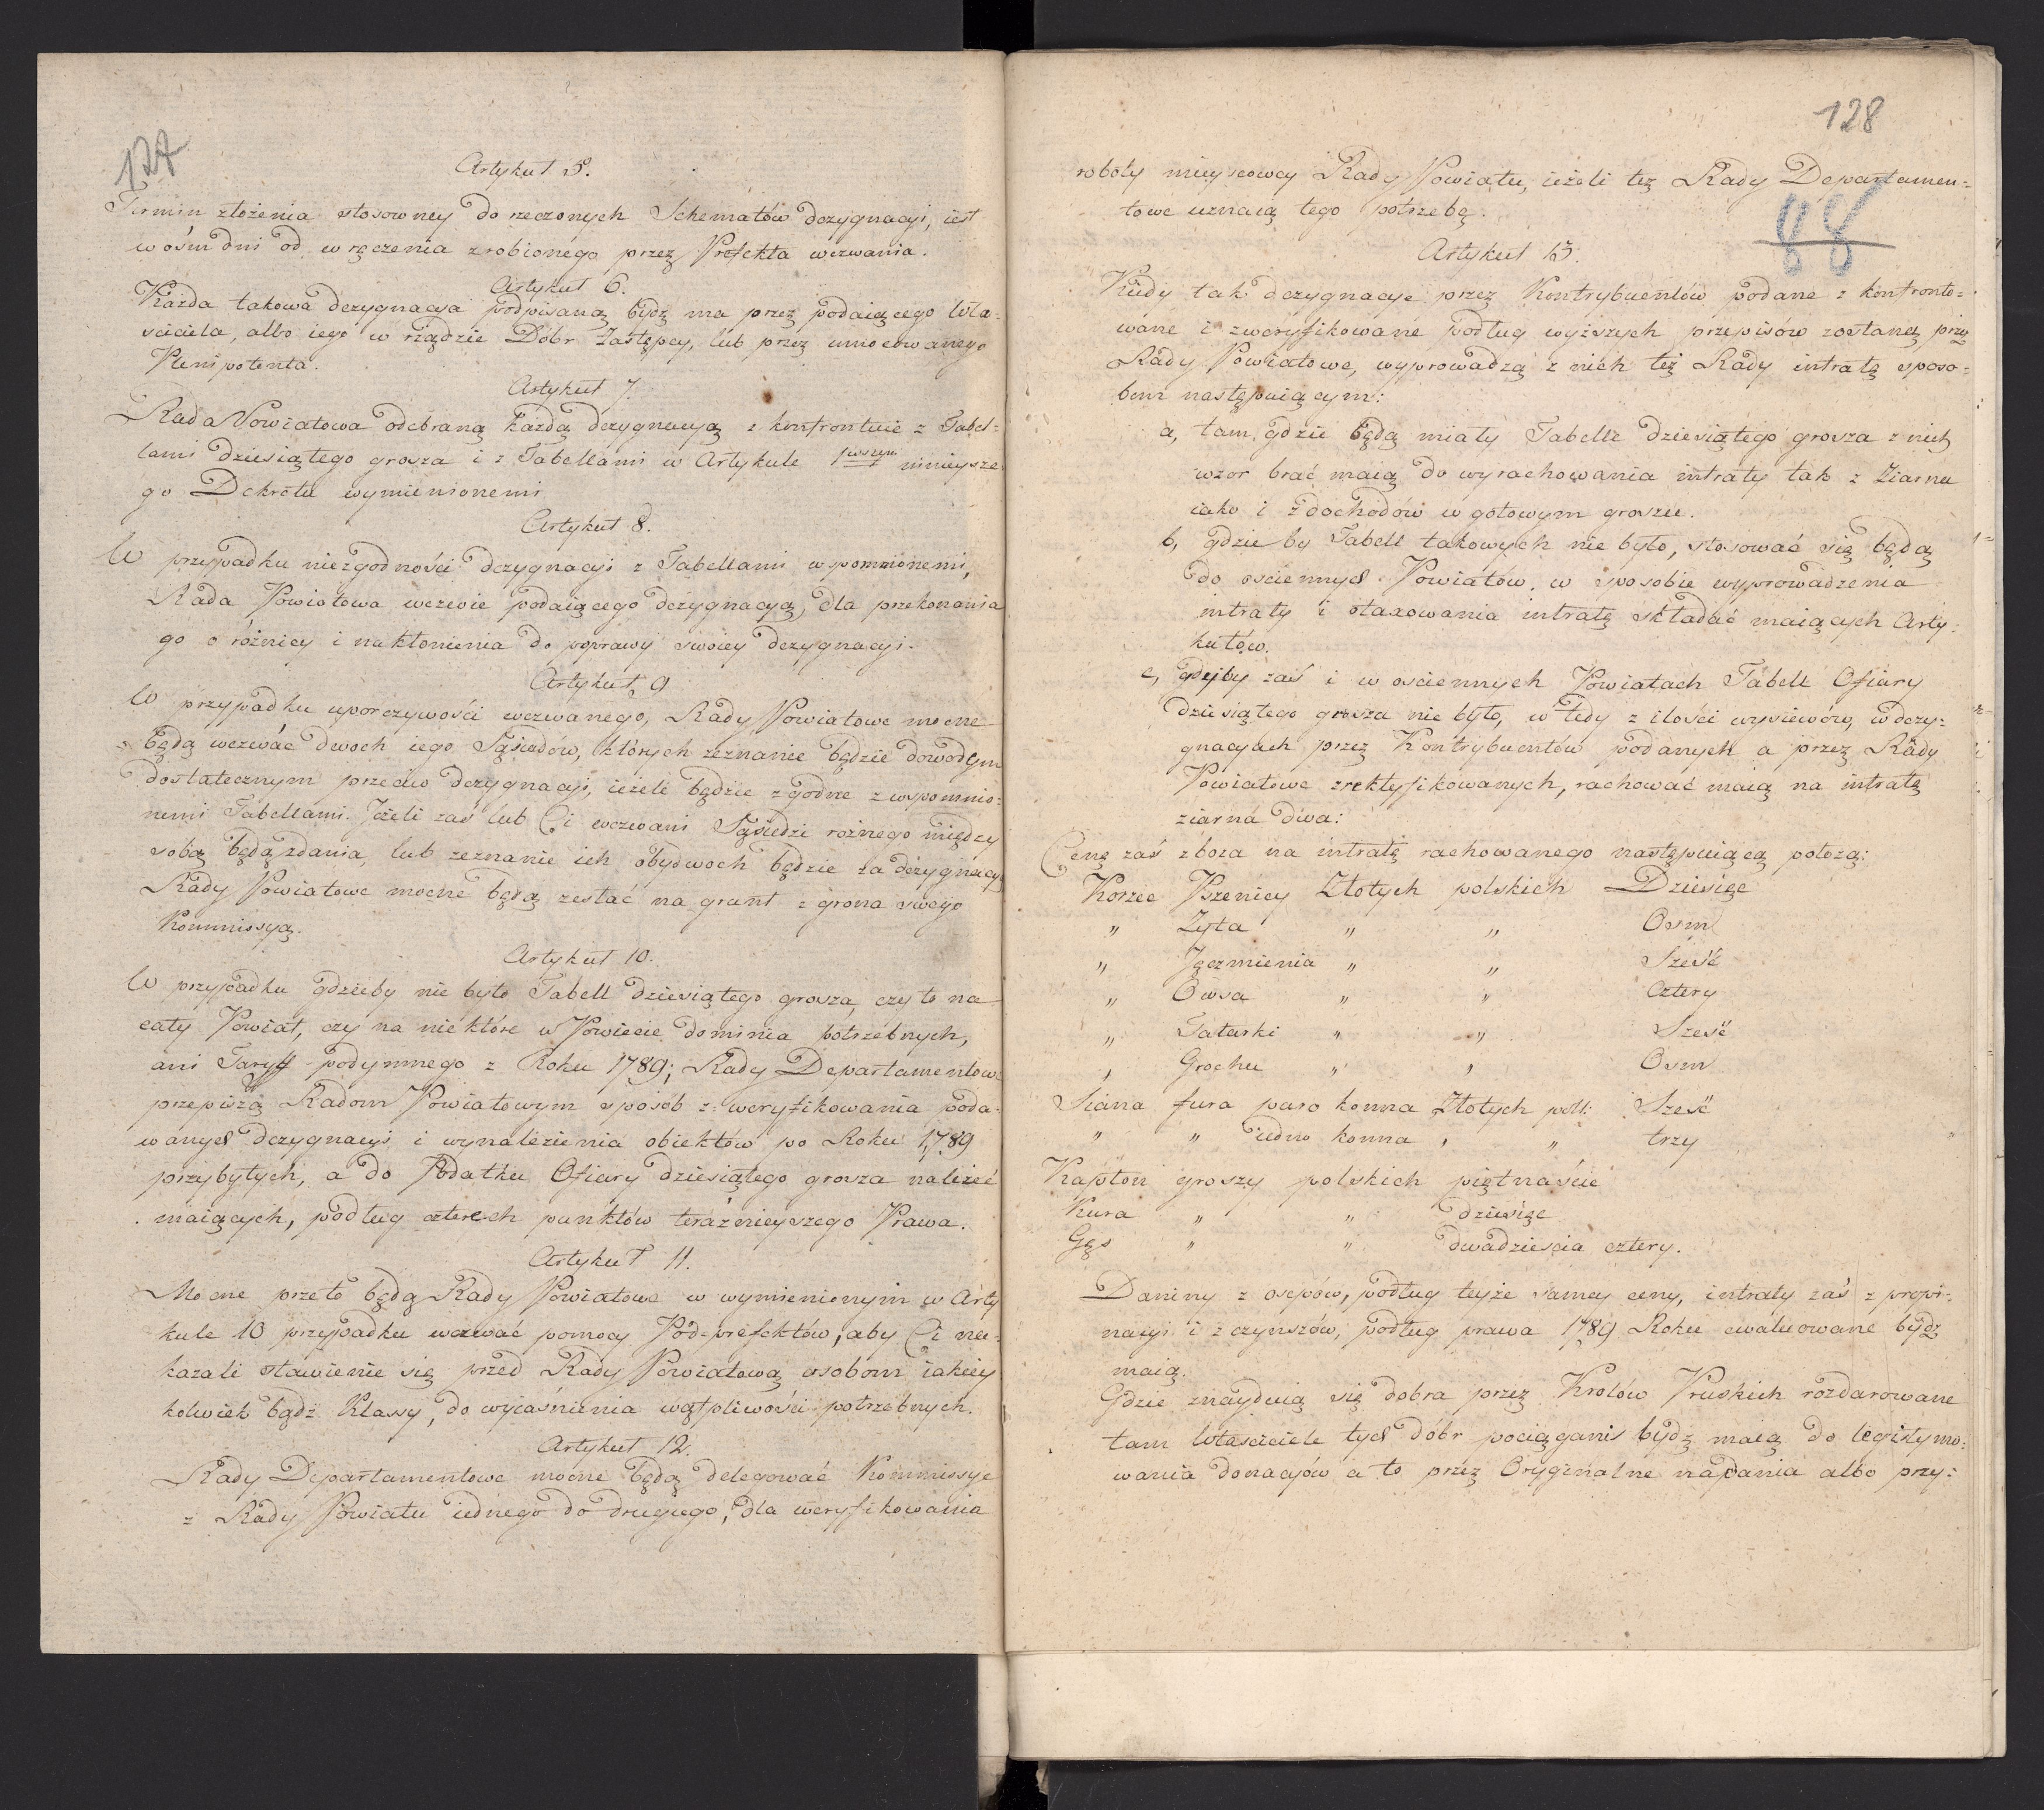 127
Artykuł 5.
Termin złożenia stosowney do rzeczonych Schematów dezygnacyi, iest
w ośm dni od wręczenia zrobionego przez Prefekta wezwania.
Artykuł 6.
Każda takowa dezygnacya podpisaną bydź ma przez podaiącego Wła-
sciciela, albo iego w rządzie Dóbr Zastępcy, lub przez umocowanego
Plenipotenta.
Artykuł 7.
Rada Powiatowa odebraną każdą dezygnacyą z konfrontuie z Tabel=
lami dziesiątego grosza i z Tabellami w Artykule 1wszym ninieysze
go Dekretu wymienionemi
Artykuł 8.
W przypadku niezgodności dezygnacyi z Tabellami wspomnionemi,
Rada Powiatowa wezwie podaiącego dezygnacyą, dla przekonania
go o różnicy i nakłonienia do poprawy swoiey dezygnacyi.
Artykuł 9
W przypadku uporczywości wezwanego, Rady Powiatowe mocne
będą wezwać dwoch iego Sąsiadów, których zeznanie będzie dowodem
dostatecznym przeciw dezygnacyi, ieżeli będzie zgodne z wspomnio=
nemi Tabellami. Jeżeli zaś lub Ci wezwani Sąsiedzi rożnego między
sobą będą zdania, lub zeznanie ich obydwoch będzie za dezygnacyą
Rady Powiatowe mocne będą zesłać na grunt z grona swego
Kommissyą.
Artykuł 10.
W przypadku gdzieby nie było Tabell dziesiątego grosza, czy to na
cały Powiat, czy na niektóre w Powiecie dominia potrzebnych,
ani Taryff podymnego z Roku 1789; Rady Departamentowe
przepiszą Radom Powiatowym sposob z weryfikowania poda-
wanych dezygnacyi i wynalezienia obiektów po Roku 1789
przybyłych, a do Podatku Ofiary dziesiątego grosza należeć
maiących, podług czterech punktów teraźnieyszego Prawa.
Artykuł 11.
Mocne przeto będą Rady Powiatowe w wymienionym w Arty
kule 10 przypadku wezwać pomocy Pod-prefektów, aby Ci na-
kazali stawienie się przed Radę Powiatową osobom iakiey
kolwiek bądź Klassy, do wyiaśnienia wątpliwości potrzebnych.
Artykuł 12.
Rady Departamentowe mocne będą delegować Kommissye
z Rady Powiatu iednego do drugiego, dla weryfikowania
128
88
roboty mieyscowey Rady Powiatu, ieżeli też Rady Departamen=
towe uznaią tego potrzebę.
Artykuł 13.
Kiedy tak dezygnacye przez Kontrybuentów podane z konfronto=
wane i zweryfikowane podług wyższych przepisów zostaną przez
Rady Powiatowe, wyprowadzą z nich też Rady intratę sposo=
bem następuiącym:
a, tam, gdzie będą miały Tabelle dziesiątego grosza z nich
wzor brać maią do wyrachowania intraty tak z Ziarna
iako i z dochodów w gotowym groszu.
b, gdzie by Tabell takowych nie było, stosować się będą
do ościennych Powiatów, w sposobie wyprowadzenia
intraty i otaxowania intratę składać maiących Arty=
kułów.
c, gdyby zaś i w ościennych Powiatach Tabell Ofiary
dziesiątego grosza nie było, w tedy z ilości wysiewów, w dezy=
gnacyach przez Kontrybuentów podanych a przez Rady
Powiatowe zrektyfikowanych, rachować maią na intratę
ziarna dwa:
Cenę zaś zboza na intratę rachowanego następuiącą położą:
Korzec Pszenicy Złotych polskich Dziesięc
" Zyta " " Osm
" Jęczmienia " " Sześć
" Owsa " " Cztery
" Tatarki " " Sześć
" Grochu " " Osm
Siana fura paro konna Złotych poll: Sześć
" " iedno konna " " trzy
Kapłon groszy polskich piętnaście
Kura " " dziesięc
Gęs " " dwadziescia cztery.
Daniny z osepów, podług teyże samey ceny, intraty zaś z propi=
nacyi i z czynszów, podług prawa 1789 Roku ewaluowane bydz
maią.
Gdzie znayduią się dobra przez Krolów Pruskich rozdarowane
tam Właściciele tych dóbr pociągani bydź maią do legitymo=
wania donacyów a to przez Oryginalne nadania albo przy=